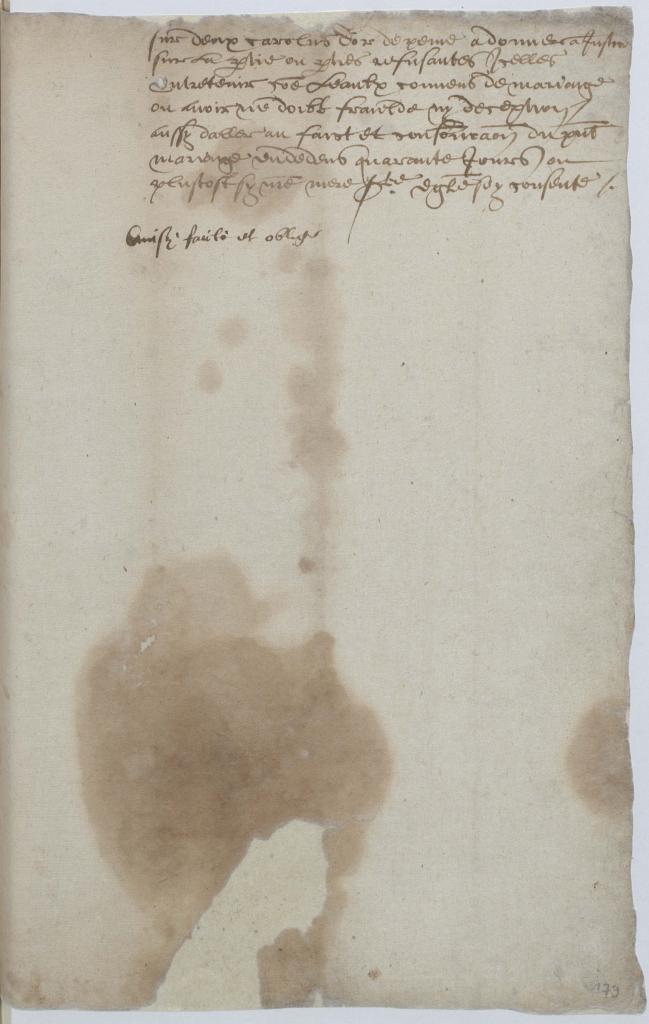 sur deux carolus dor de peine a donner a Justice
sur la ptie ou pties refusantes Icelles
Entretenir coe leaulx convens de mariaige
ou avoir ne doibt fraulde ny deception
aussy daller au faict et consomacon du pnt
mariaige endedens quarante Jours ou
plustost sy nre mere ste eglise sy consente /.
Ainsy faict et oblige
179